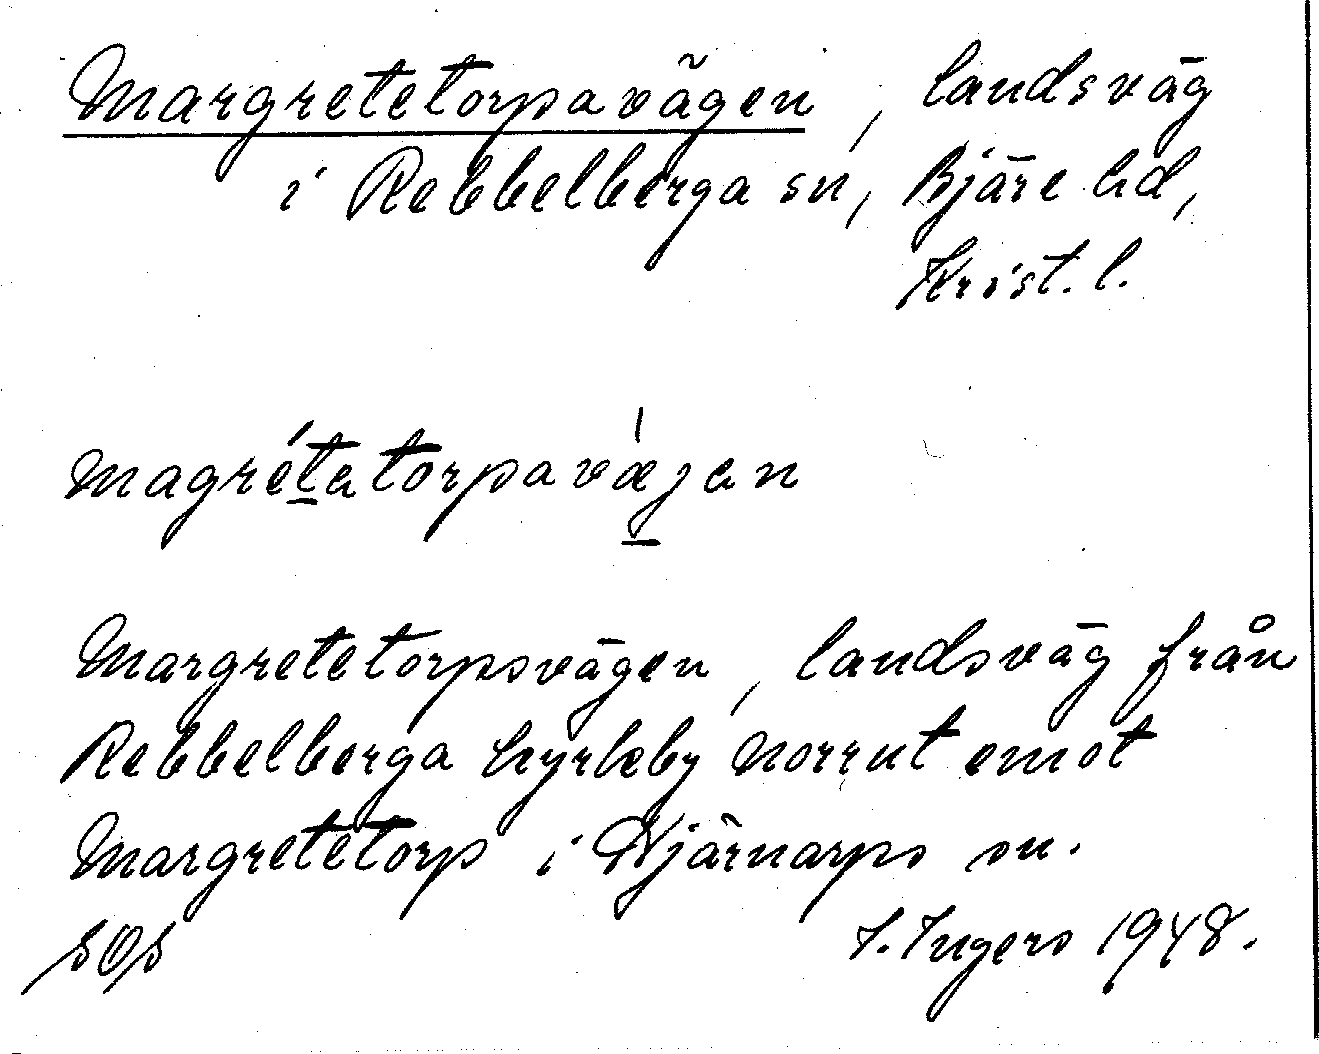 Margretetorpavägen, landsväg
i Rebbelberga sn, Bjäre hd,
Krist. l.
magrétatorpavæjan
Margretetorpsvägen, landsväg från
Rebbelberga kyrkby norrut emot
Margretetorp i Hjärnarps sn.
SOS I. Ingers 1948.